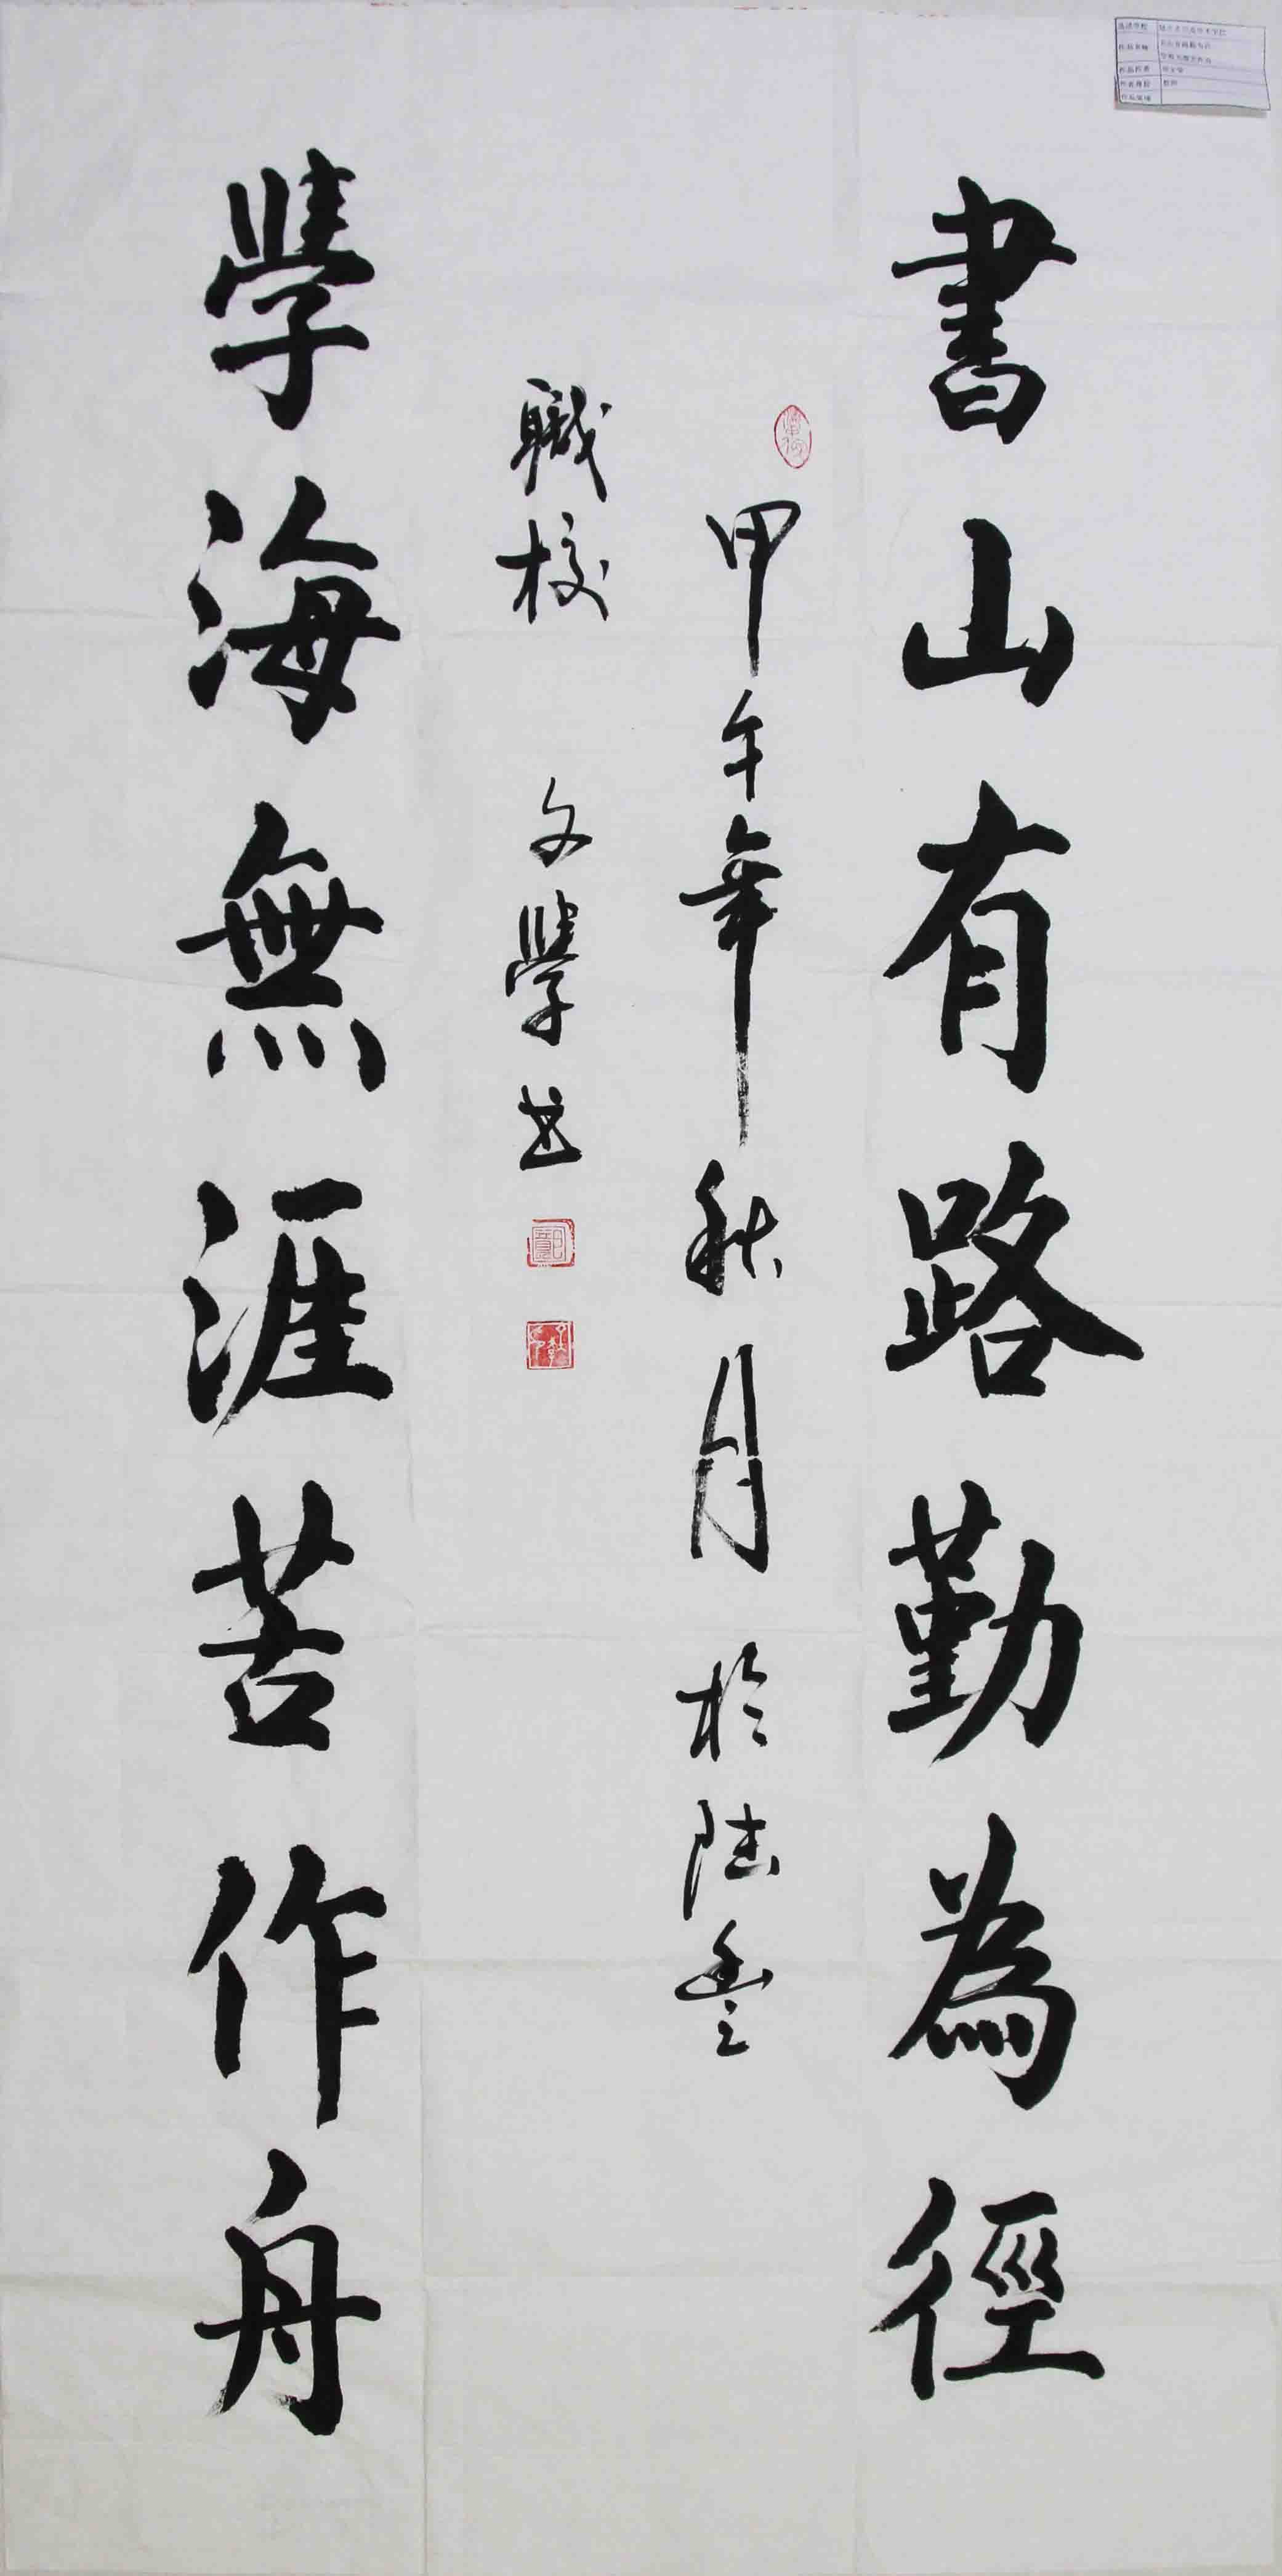 書山有路勤為徑
甲午年秋月於陸豐
職校文學書
學海無涯苦作舟